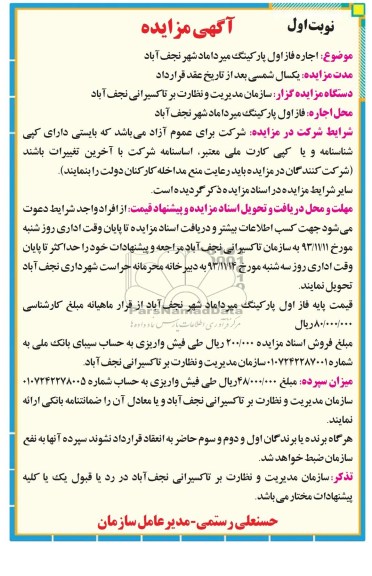 نوبت اول
آگهی مزایده
موضوع: اجاره فاز اول پارکینگ میرداماد شهر نجف آباد
مدت مزایده: یکسال شمسی بعد از تاریخ عقد قرارداد
دستگاه مزایده گزار: سازمان مدیریت و نظارت بر تاکسیرانی نجف آباد
محل اجاره: فاز اول پارکینگ میرداماد شهر نجف آباد
شرایط شرکت در مزایده: شرکت برای عموم آزاد می‌باشد که بایستی دارای کپی
شناسنامه و یا کپی کارت ملی معتبر، اساسنامه شرکت با آخرین تغییرات باشند
(شرکت کنندگان در مزایده باید رعایت منع مداخله کارکنان دولت را بنمایند).
سایر شرایط مزایده در اسناد مزایده ذکر گردیده است.
مهلت و محل دریافت و تحویل اسناد مزایده و پیشنهاد قیمت: از افراد واجد شرایط دعوت
می شود جهت کسب اطلاعات بیشتر و دریافت اسناد مزایده تا پایان وقت اداری روز شنبه
مورخ ۹۳/۱۱/۱۱ به سازمان تاکسیرانی نجف آباد مراجعه و پیشنهادات خود را حداکثر تا پایان
وقت اداری روز سه شنبه مورخ ۹۳/۱۱/۱۴ به دبیرخانه محرمانه حراست شهرداری نجف آباد
تحویل نمایند.
قیمت پایه فاز اول پارکینگ میرداماد شهر نجف آباد از قرار ماهیانه مبلغ کارشناسی
۸۰/۰۰۰/۰۰۰ریال
مبلغ فروش اسناد مزایده ۲۰۰/۰۰۰ ریال طی فیش واریزی به حساب سیبای بانک ملی به
شماره ۰۱۰۷۲۴۲۲۸۷۰۰۱ سازمان مدیریت و نظارت بر تاکسیرانی نجف آباد.
میزان سپرده: مبلغ ۴۸/۰۰۰/۰۰۰ریال طی فیش واریزی به حساب شماره ۰۱۰۷۲۴۲۲۷۸۰۰۵
سازمان مدیریت و نظارت بر تاکسیرانی نجف آباد و یا معادل آن را ضمانتنامه بانکی ارائه
نمایند.
هرگاه برنده یا برندگان اول و دوم و سوم حاضر به انعقاد قرارداد نشوند سپرده آنها به نفع
سازمان ضبط خواهد شد.
تذکر: سازمان مدیریت و نظارت بر تاکسیرانی نجف آباد در رد یا قبول یک یا کلیه
پیشنهادات مختار می‌باشد.
حسنعلی رستمی-مدیرعامل سازمان